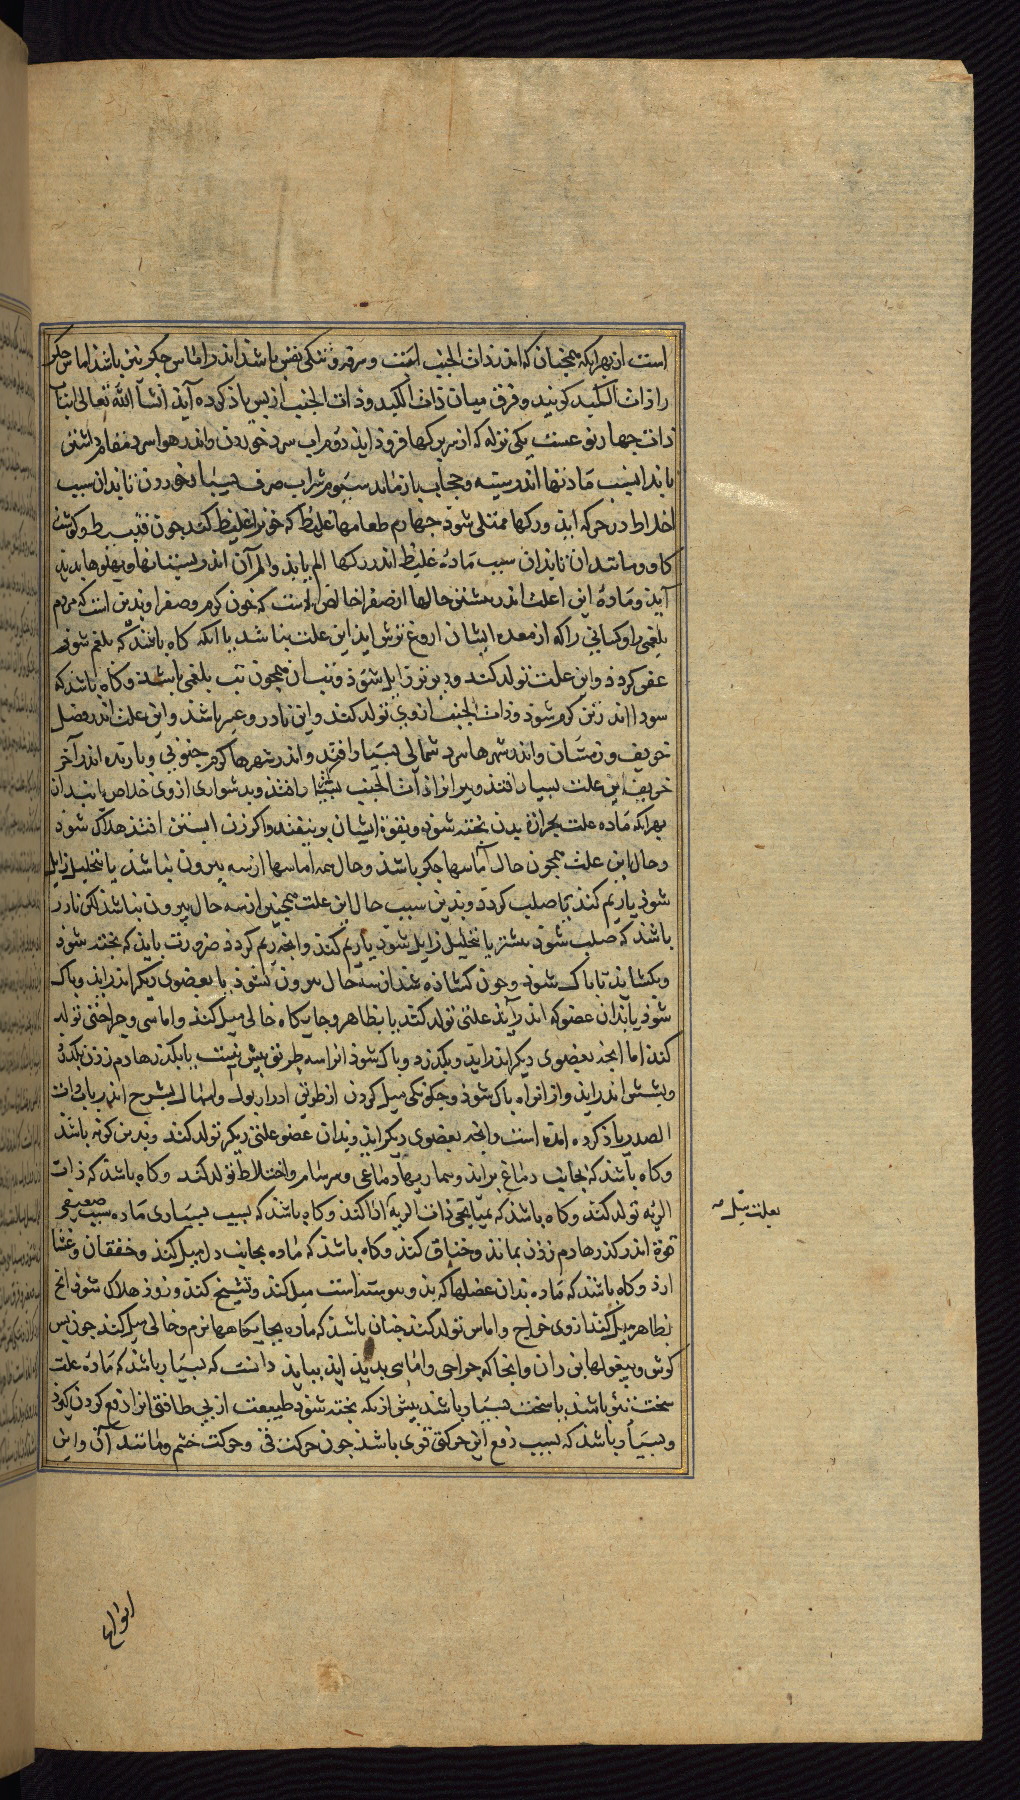 است از بهر انکه همجنان که اندر ذات الجنب است و سرفه و تنکی نفس باشد اندر اماس جکر نیز باشد اماس جکر
را ذات الکبد کویند و فرق میان ذات الکبد و ذات الجنب ازیس یاذ کرده آید انشآ الله تعالی
ذات جهار نوعست یکی نزله که از سر فروذ اید دوم اب سرد خوردن واندر هوا سرد مقام داشتن
تا بدانسبب مادتها اندر سینه و حجاب باز ماند سیوم شراب صرف بسیار خوردن تا بدان سبب
اخلاط در حرکه ایذ و رکها ممتلی شود جهارم طعامها غلیظ که خون را غلیظ کند جون و کوشت
کاو و مانند ان تا بدان سبب مادۀ غلیظ اندر رکها الم یابذ والم آن اندر و پهلوها بدید
آید و مادۀ این علت اندر بیشتر حالها از صفرا خالص است که خون کرم و صفرا وبدین است که مردم
بلغمی را و کسانی را که از معده ایشان اروغ ترش ایذ این علت نباشد با انکه کاه باشد که بلغم شور
عفن کردذ و این علت تولد کند و دیرتر زایل شوذ و تب ان همجون تب بلغمی باشد و کاه باشد که
سودا اندر کرم شوذ و ذات الجنب ازوی تولد کند و این نادر و باشد و این علت اندر فصل
خریف و زمستان واندر شهرها سرد شمالی بسیار افتد و اندر شهرها کرم جنوبی و اندر آخر
خریف این علت بسیار افتد و پیرانرا ذات الجنب افتذ و بدشواری ازوی خلاص یابند از
بهر انکه ماده علت بحرارة بدن بخته شوذ و بقوة ایشان بربیفتد واکر زن ابستن افتذ هلاک شوذ
و حال این علت همجون حال آماسها جکر باشد و حال همه اماسها ازسه بیرون نباشد یا بتحلیل زایل
شوذ یا ریم کند یا صلب کردد و بدین سبب حال این علت همجنین از سه حال بیرون نباشد لکن نادر
باشد که صلب شوذ بیشتر یا بتحلیل زایل شوذ یا ریم کند وانجه ریم کردذ ضرورت بایذ که بخته شوذ
و بکشاید تا باک شوذ وجون کشاذه شذ از سه حال بیرون نشوذ یا بعضوی دیکر اندر اید و باک
شوذ یا بدان عضو که اندر آید علتی تولد کند یا بظاهر و جایکاه خالی میل کند واماسی و جراحتی تولد
کند اما انجه بعضوی دیکر اندر اید و بکذرد و باک شوذ انرا سه طریق بیش نیست یا بکذرها دم زدن بکذرد
و بشش اندر اید واز انراه باک شوذ و جکونکی میل کردن از طریق ادرار بول واسهال بشرح اندر باب ذات
الصدر یاذ کرده امده است وانجه بعضوی دیکر اید و بدان عضو علتی دیکر تولد کند و بدین کونه باشد
و کاه باشد که بجانب دماغ براید و بیماریهآ دماغی و سرسام واختلاط تولد کند و کاه باشد که ذات
الریه تولد کند و کاه باشد که ذات الریه ادا کند و کاه باشد که بسبب بسیاری ماده سبب ضعیفی
قوة اندر کذرها دم زدن بماند و خناق کند و کاه باشد که ماده بجانب دل میل کند و خفقان و غشا
ارد و کاه باشد که ماده بدان عضلها که بدو بیوسته است میل کند و تشنج کند و زوذ هلاک شوذ انج
بظاهر میل کند ازوی خراج واماس تولد کند جنان باشد که ماده بجایکاهها نرم و خالی میل کند جون بس
کوش و بیغولها بن ران وانجا که جراحی واماسی بدید اید بباید دانست که بسیار باشد که مادۀ علت
سخت بذ باشد یا سخت بسیار باشد بیش ازنکه بخته شوذ طبیعت از بی طاقتی انرا دفع کردن کیرد
و بسیار باشد که بسبب دفع این حرکتی قوی باشد جون حرکت قی و حرکت خشم و مانند آن و این
بعلت سل
انواع